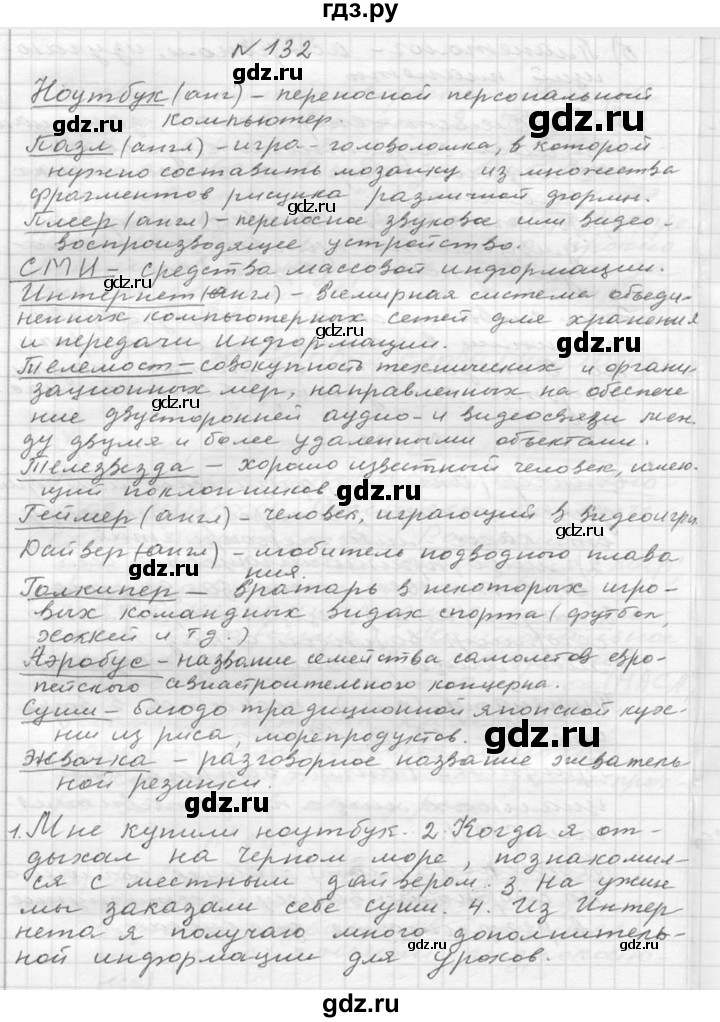 гдз.ру
№ 132
Ноутбук (анг) – переносной персональный
компьютер.
gdz.ru
gdz.ru
Пазл (англ) – игра – головоломка, в которой
нужно составить мозаику из множества
фрагментов рисунка различной формы.
gdz.ru
Плеер (англ) – переносное звуковое или видео-
воспроизводящее устройство.
СМИ – средства массовой информации.
gdz.ru
gdz.ru
Интернет (англ) – всемирная система объеди-
ненных компьютерных сетей для хранения
и передачи информации.
gdz.ru
Телемост – совокупность технических и органи-
зационных мер, направленных на обеспече
ние двусторонней аудио- и видеосвязи меж
ду двумя и более удаленными объектами.
gdz.ru
gdz.ru
Телезвезда – хорошо известный человек, имею-
щий поклонников
gdz.ru
Геймер (англ) – человек, играющий в видеоигры.
gdz.ru
Дайвер (англ) – любитель подводного плава
ния.
gdz.ru
Голкипер – вратарь в некоторых игро-
вых командных видах спорта (футбол,
хоккей и т д.)
gdz.ru
gdz.ru
Аэробус – название семейства самолетов евро-
пейского авиастроительного концерна.
Суши – блюдо традиционной японской кух-
ни из риса, морепродуктов.
gdz.ru
Жвачка – разговорное название жеватель
ной резинки.
gdz.ru
1. Мне купили ноутбук. 2. Когда я от-
дыхал на Черном море, познакомил-
ся с местным дайвером. 3. На ужин
gdz.ru
мы заказали себе суши. 4. Из Интер
нета я получаю много дополнитель-
gdz.ru
gdz.ru
ной информации для уроков.
gdz.ru